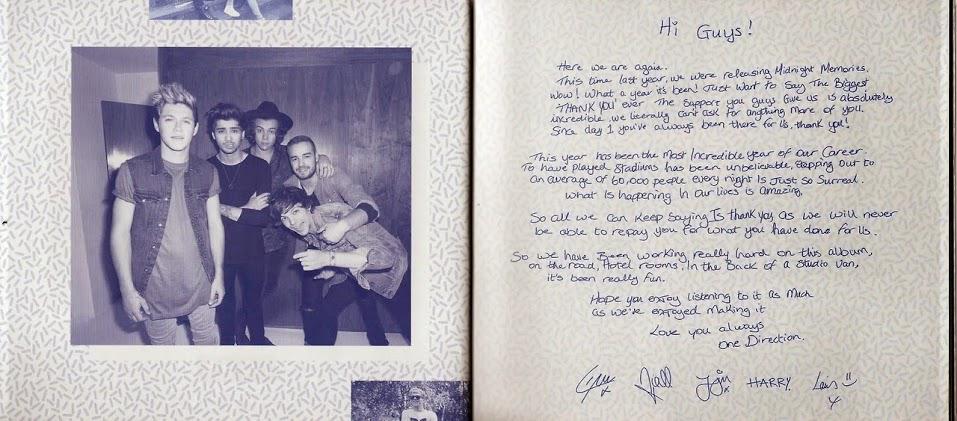 Hi Guys!
Here we are again.
This time last year, we were releasing Midnight Memories.
Wow! What a year it's been! Just want to say The Biggest
THANK YOU ever The support you guys Give us is absolutely
incredible, we literally can't ask for anything more of you.
Since day 1 you've always been there for us, thank you!
This year has been the Most Incredible year of our career.
To have played Stadiums has been unbelievable, Stepping Out to
an average of 60,000 people every night Is Just so Surreal.
What is happening In our lives is amazing.
So all we can keep saying Is thank you, as we will never
be able to repay you for what you have done for us.
So we have Been working really hard on this album,
on the road, Hotel rooms, In the Back of a Studio Van,
it's been really fun.
Hope you enjoy listening to it as Much
as we've enjoyed Making it
Love you always
One Direction.
Niall
HARRY
Louis